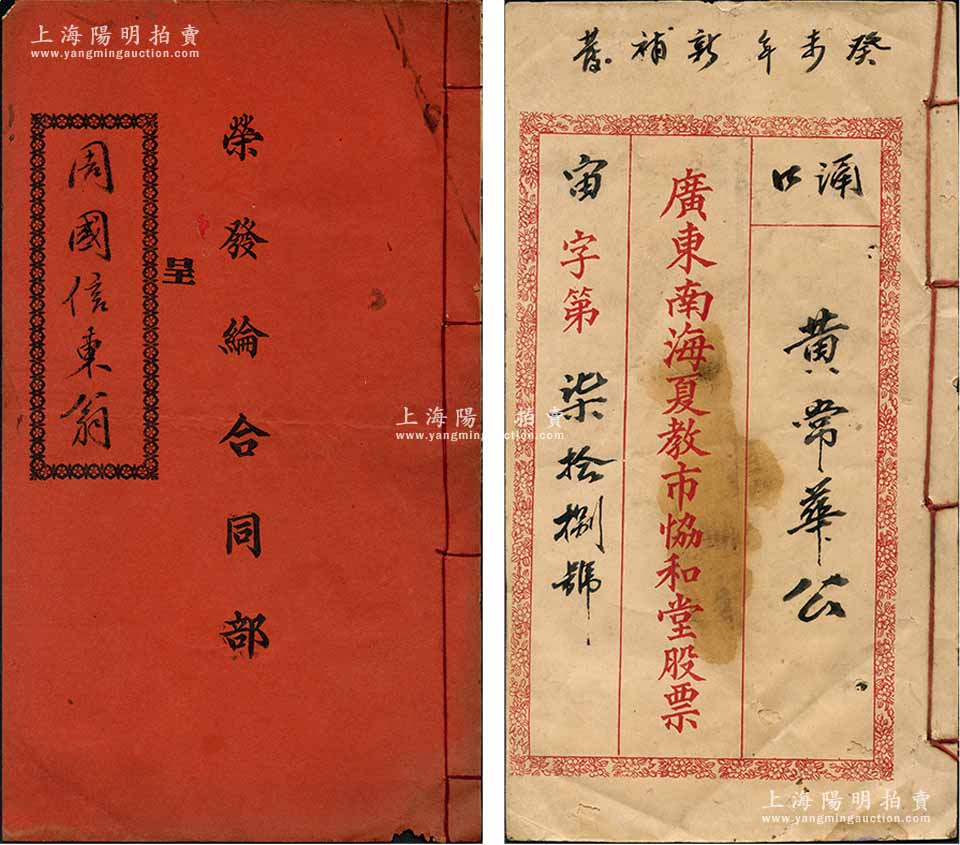 上海陽明拍賣
www.yangmingauction.com
榮發綸合同部
呈
周國信東翁
癸未年新補發
涌口
黄常華公
廣東南海夏教市協和堂股票
宙字第柒拾捌號
上海陽明拍賣
www.yangmingauction.com
上海陽明拍賣
www.yangmingauction.com